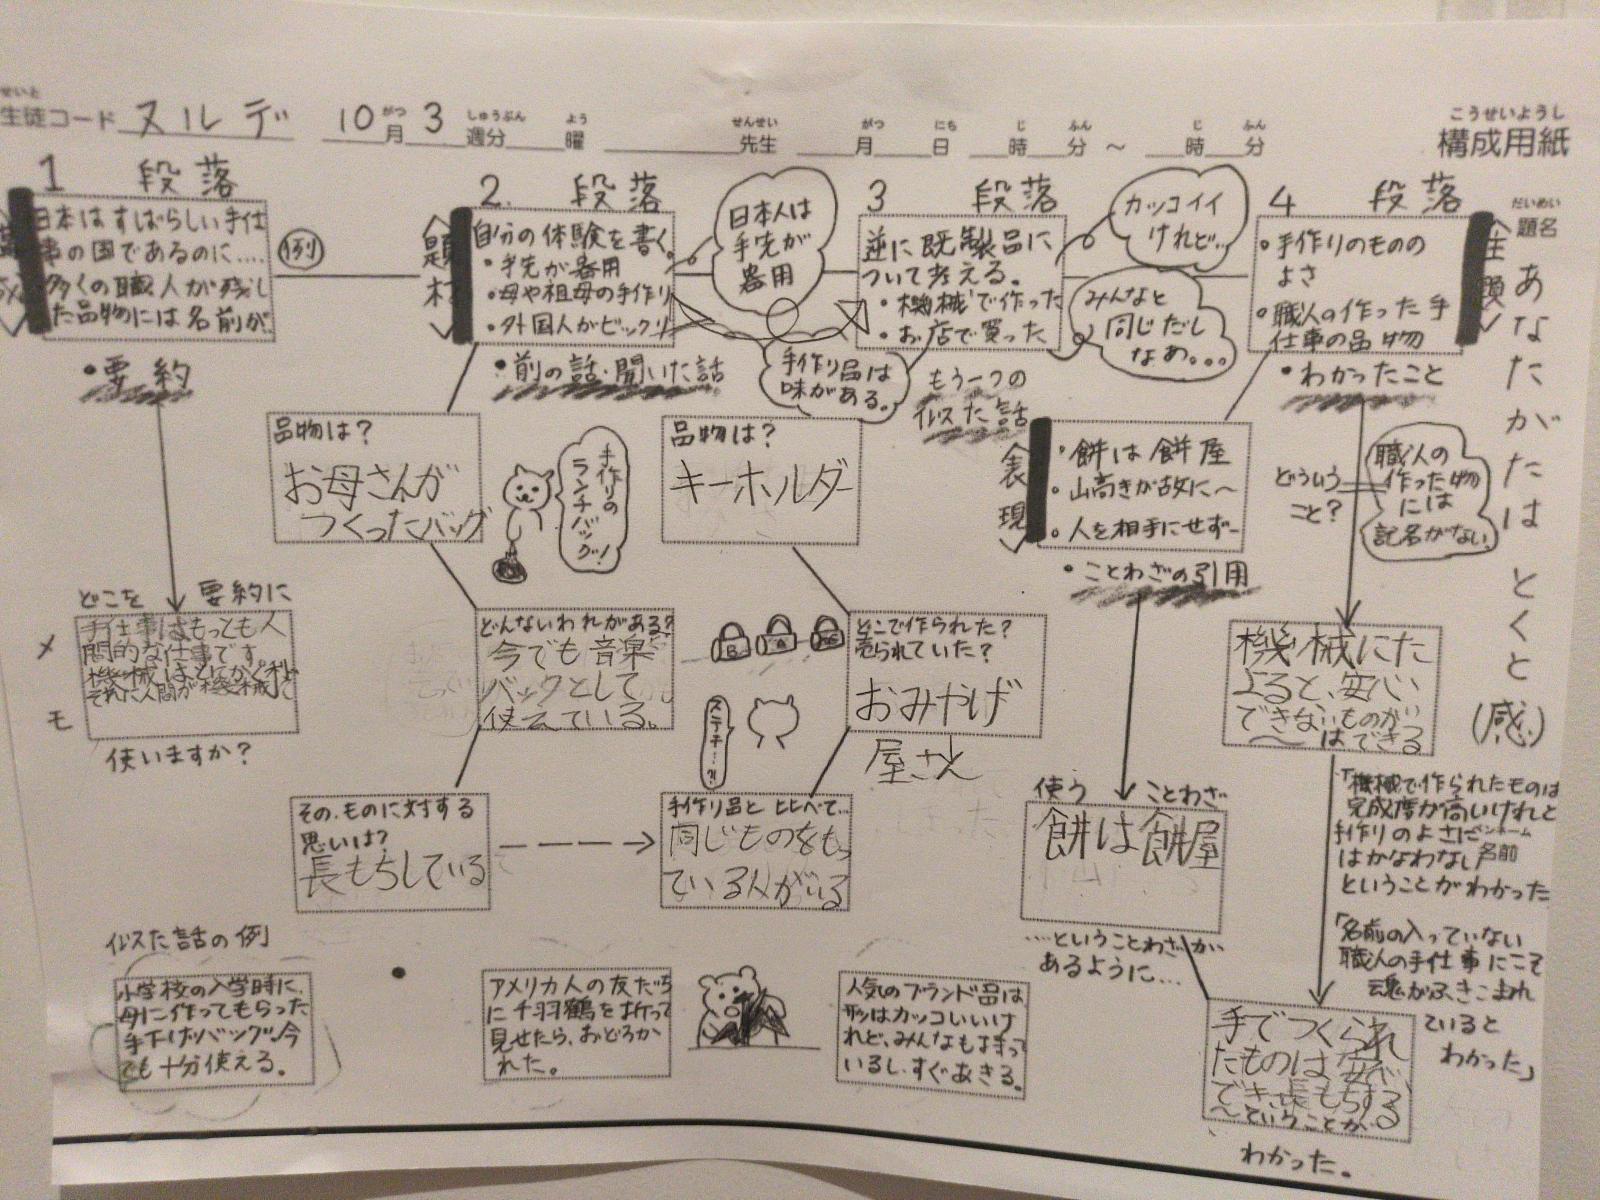 生徒コード ヌルデ 10月3週分 曜 先生 月 日 時 分 ～ 時 分
せいと がつ しゅうぶん よう せんせい がつ にち じ ふん じ ふん
こうせいようし
構成用紙
だいめい
題名
あなたがたはとくと(感)
1 段落
日本はすばらしい手仕
事の国であるのに....
多くの職人が残し
た品物には名前が
・要約
例
どこを 要約に
メモ
手仕事はもっとも人
間的な仕事です
使いますか?
2. 段落
〈題材〉
自分の体験を書く。
・手先が器用
・母や祖母の手作り
・外国人がビックリ
・前の話・聞いた話
日本人は
手先が
器用
手作り品は
味がある。
品物は?
お母さんが
つくったバッグ
手作りの
ランチバッグ!
どんないわれがある?
今でも音楽
バックとして
使えている。
その、ものに対する
思いは?
長もちしている
3 段落
逆に既製品に
ついて考える。
・機械で作った
・お店で買った
もう一つの
似た話
カッコイイ
けれど...
みんなと
同じだし
なあ...
品物は?
キーホルダー
どこで作られた?
売られていた?
おみやげ
屋さん
ステキ…?!
手作り品と比べて...
同じものをもっ
ている人がいる
4 段落
〈主題〉
・手作りのものの
よさ
・職人の作った手
仕事の品物
・わかったこと
〈表現〉
・餅は餅屋
・山高きが故に〜
・人を相手にせず−
・ことわざの引用
使う ことわざ
餅は餅屋
…ということわざが
あるように...
どういう
こと?
職人の
作った物
には
記名がない。
機械にた
よると、安心
できないものがい
〜はできる
「機械で作られたものは
完成度が高いけれど
手作りのよさに
はかなわない
ということがわかった
ペンネーム
名前
「名前の入っていない
職人の手仕事にこそ
魂がふきこまれ
ていると
わかった」
手でつくられ
たものは安心
でき、長もちする
〜ということが
わかった。
似た話の例
小学校の入学時に、
母に作ってもらった
手下げバッグ。今
でも十分使える。
アメリカ人の友だち
に千羽鶴を折って
見せたら、おどろか
れた。
人気のブランド品は
形はカッコいいけ
れど、みんなも持って
いるし、すぐあきる。